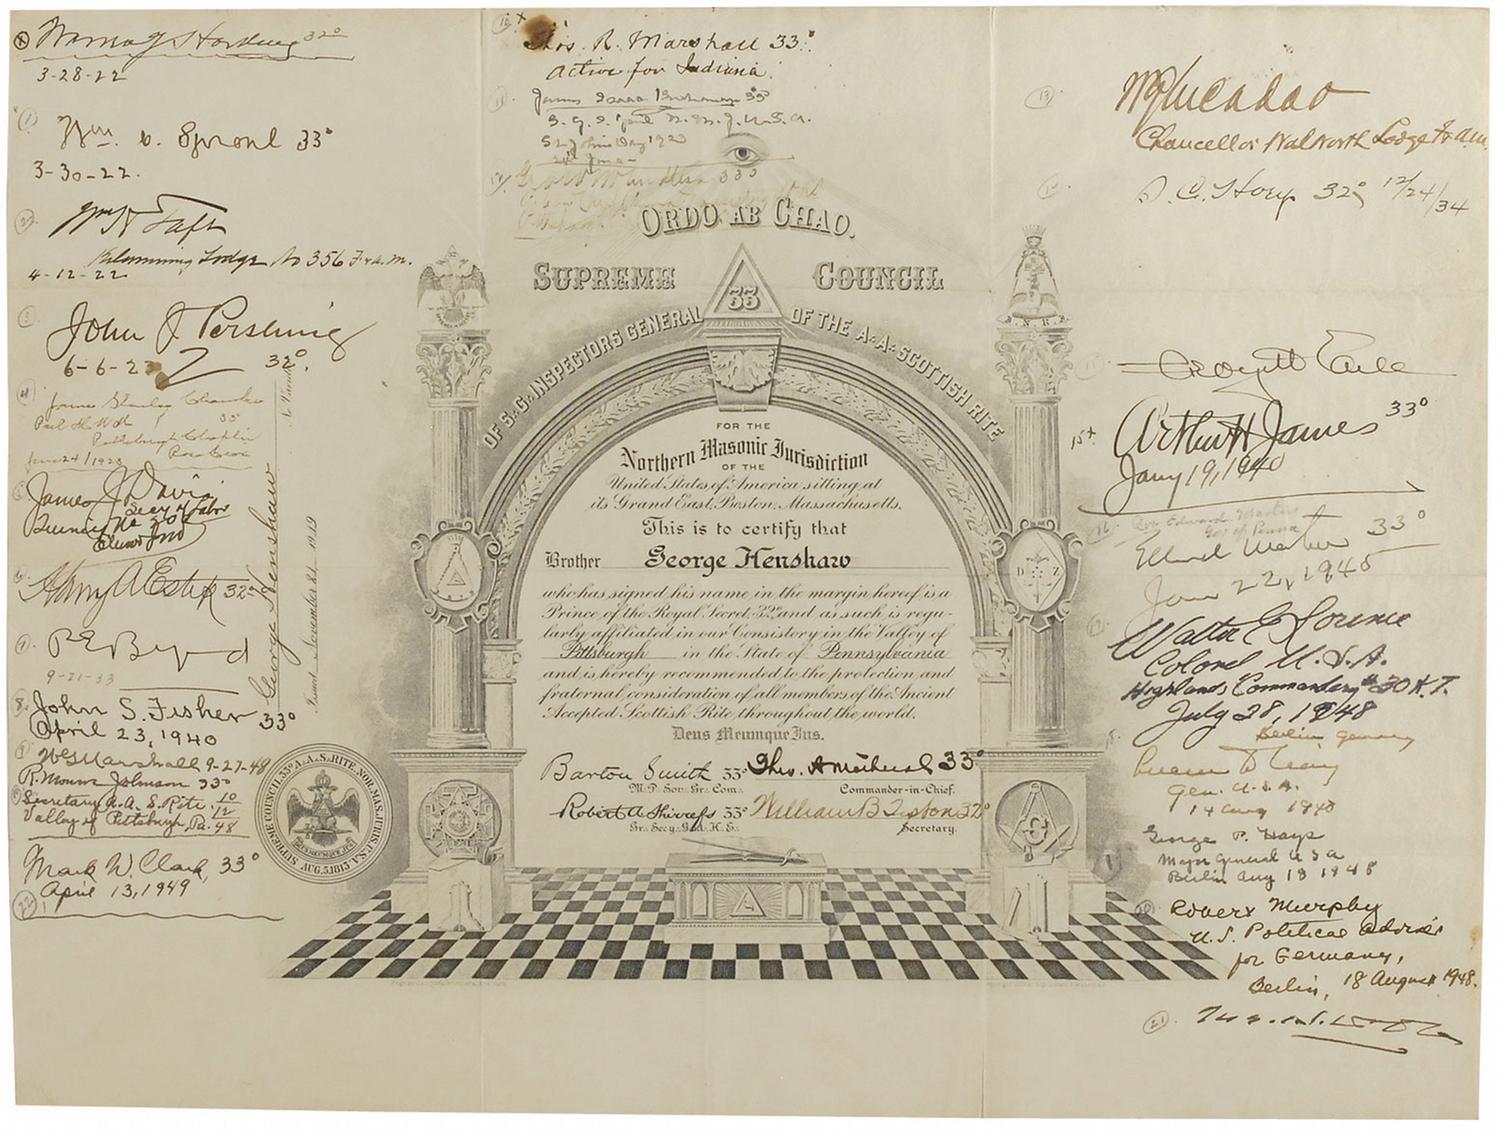 Warren G Harding 32°
3-28-22
Wm. C. Sproul 33°
3-30-22.
Wm H Taft
Lodge No 356 F & A. M.
4-12-22
John J. Pershing
6-6-22 32°.
James Stanley
Past
Pittsburgh
June 24/1923
James J Davis
Secy of Labor
No 206
Elwood Ind
Harry A Estep 32°
R E Byrd
9-21-33
John S. Fisher 33°
April 23, 1940
W G Marshall 9-27-48
Johnson 33°
Secretary A. A. S. Rite. 10/12
Valley of Pittsburgh, Pa. 48
Mark W. Clark, 33°
April 13, 1949
22
George Henshaw
Issued November 8th 1919
Thos. R. Marshall 33°.
Active for Indiana.
James Isaac Buchanan 33°
N. M. J. U.S.A.
St Johns Day 1923
33°
ORDO AB CHAO.
SUPREME COUNCIL
33
OF S∴G∴INSPECTORS GENERAL OF THE A∴A∴SCOTTISH RITE
I. N. R. I.
FOR THE
Northern Masonic Jurisdiction
OF THE
United States of America sitting at
its Grand East, Boston, Massachusetts.
This is to certify that
Brother George Henshaw
who has signed his name in the margin hereof is a
Prince of the Royal Secret 32° and as such is regu-
larly affiliated in our Consistory in the Valley of
Pittsburgh in the State of Pennsylvania
and is hereby recommended to the protection and
fraternal consideration of all members of the Ancient
Accepted Scottish Rite throughout the world.
Deus Meumque Jus.
Barton Smith 33°
M∴P∴Sov∴Gr∴Com∴
33°
Commander-in-Chief.
Robert A Shirrefs 33°
Gr∴Secy∴Gen∴H∴E∴
William B 32°
Secretary.
SUPREME COUNCIL 33° A.A.S. RITE. NOR. MAS. JURIS. U.S.A. AUG. 5. 1813
W G McAdoo
Chancellor Walworth Lodge F & A M.
D. C. 32° 12/24/34
George H Earle
Arthur H James 33°
Jany 19, 1940
Edward Martin
Gov of Penna
Edward Martin 33°
June 22, 1945
Walter E Lorence
Colonel U. S. A.
Highlands Commandery # 30 K. T.
July 28, 1948
Berlin Germany
Lucius D Clay
Gen. U.S.A.
14 Aug 1948
George P. Hays
Major General U S A
Berlin Aug 18 1948
Robert Murphy
U. S. Political Adviser
for Germany,
Berlin, 18 August 1948.
21